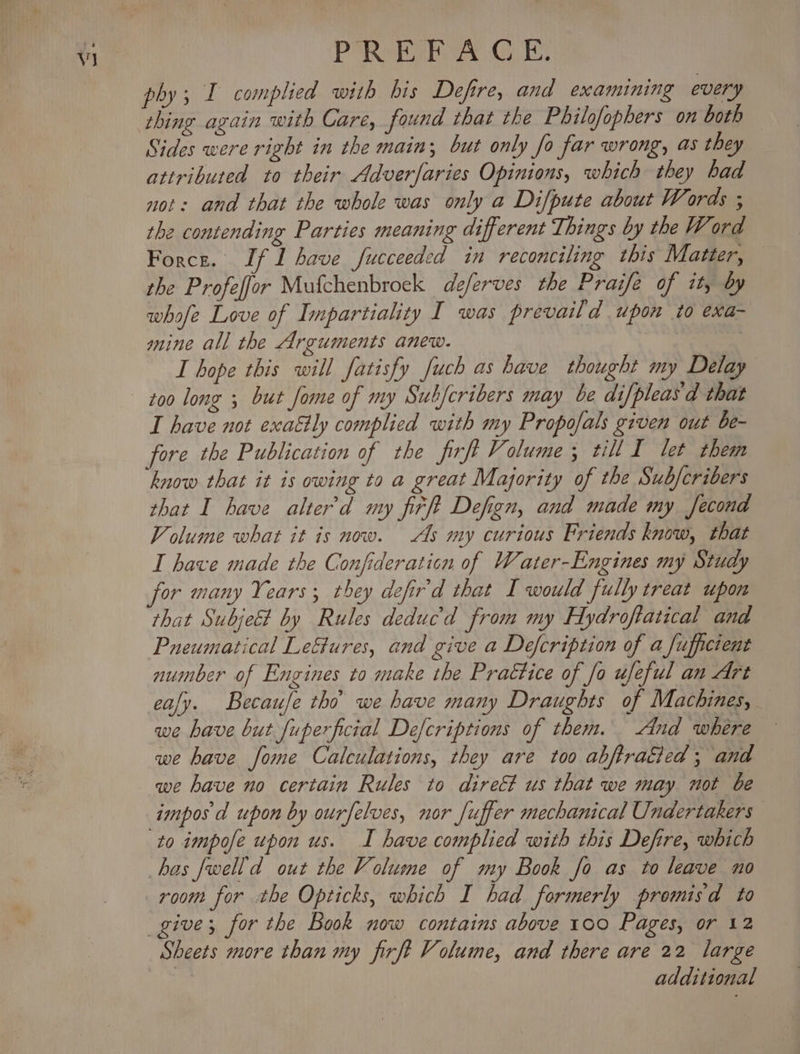 vj
PREFACE.
phy; I complied with his Deſire, and examining every
thing again with Care, found that the Philoſophers on both
Sides were right in the main; but only ſo far wrong, as they
attributed to their Adverſaries Opinions, which they had
not: and that the whole was only a Diſpute about Words;
the contending Parties meaning different Things by the Word
Force. If I have ſucceeded in reconciling this Matter,
the Profeſſor Muſchenbroek deſerves the Praiſe of it, by
whoſe Love of Impartiality I was prevail'd upon to exa-
mine all the Arguments anew.
I hope this will ſatisfy ſuch as have thought my Delay
too long; but ſome of my Subſcribers may be diſpleas'd that
I have not exactly complied with my Propoſals given out be-
fore the Publication of the firſt Volume; till I let them
know that it is owing to a great Majority of the Subſcribers
that I have alter'd my firſt Deſign, and made my ſecond
Volume what it is now. As my curious Friends know, that
I have made the Conſideration of Water-Engines my Study
for many Years; they deſir'd that I would fully treat upon
that Subject by Rules deduc'd from my Hydroſtatical and
Pneumatical Lectures, and give a Deſcription of a ſufficient
number of Engines to make the Practice of ſo uſeful an Art
eaſy. Becauſe tho' we have many Draughts of Machines,
we have but ſuperficial Deſcriptions of them. And where
we have ſome Calculations, they are too abſtracted; and
we have no certain Rules to direct us that we may not be
impos'd upon by ourſelves, nor ſuffer mechanical Undertakers
to impoſe upon us. I have complied with this Deſire, which
has ſwell'd out the Volume of my Book ſo as to leave no
room for the Opticks, which I had formerly promis'd to
give; for the Book now contains above 100 Pages, or 12
Sheets more than my firſt Volume, and there are 22 large
additional